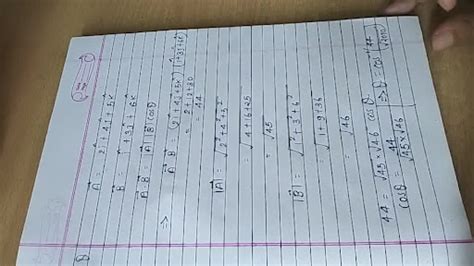 A⃗ = 2î + 4ĵ + 5k̂
B⃗ = î + 3ĵ + 6k̂
A⃗ · B⃗ = |A⃗| |B⃗| cosθ
⇒ A⃗ · B⃗ = (2î + 4ĵ + 5k̂) (î + 3ĵ + 6k̂)
= 2 + 12 + 30
= 44
|A⃗| = √2² + 4² + 5²
= √4 + 16 + 25
= √45
|B⃗| = √1² + 3² + 6²
= √1 + 9 + 36
= √46
44 = √45 × √46 cosθ
cosθ = 44 / √45 × √46
⇒ θ = cos⁻¹ (44 / √2070)